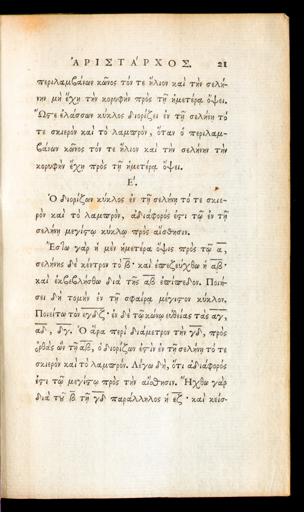 ἈΡΙΣΤΑΡΧΟΣ. 21
περιλαμβάνων κῶνος τόν τε ἥλιον καὶ τὴν σελή-
νην μὴ ἔχῃ τὴν κορυφὴν πρὸς τῇ ἡμετέρᾳ ὄψει.
Ὥστε ἐλάσσων κύκλος διορίζει ἐν τῇ σελήνῃ τό
τε σκιερὸν καὶ τὸ λαμπρὸν, ὅταν ὁ περιλαμ-
βάνων κῶνος τόν τε ἥλιον καὶ τὴν σελήνην τὴν
κορυφὴν ἔχῃ πρὸς τῇ ἡμετέρᾳ ὄψει.
Ε΄.
Ὁ διορίζων κύκλος ἐν τῇ σελήνῃ τό τε σκιε-
ρὸν καὶ τὸ λαμπρὸν, ἀδιάφορός ἐστι τῷ ἐν τῇ
σελήνῃ μεγίστῳ κύκλῳ πρὸς αἴσθησιν.
Ἔστω γὰρ ἡ μὲν ἡμετέρα ὄψις πρὸς τῷ α,
σελήνης δὲ κέντρον τὸ β· καὶ ἐπεζεύχθω ἡ αβ·
καὶ ἐκβεβλήσθω διὰ τῆς αβ ἐπίπεδον. Ποιή-
σει δὴ τομὴν ἐν τῇ σφαίρᾳ μέγιστον κύκλον.
Ποιείτω τὸν εγδζ· ἐν δὲ τῷ κώνῳ εὐθείας τὰς αγ,
αδ, δγ. Ὁ ἄρα περὶ διάμετρον τὴν γδ, πρὸς
ὀρθὰς ὢν τῇ αβ, ὁ διορίζων ἐστὶν ἐν τῇ σελήνῃ τό τε
σκιερὸν καὶ τὸ λαμπρόν. Λέγω δὴ, ὅτι ἀδιάφορός
ἐστι τῷ μεγίστῳ πρὸς τὴν αἴσθησιν. Ἤχθω γὰρ
διὰ τῦ β τῇ γδ παράλληλος ἡ εζ· καὶ κείσ-